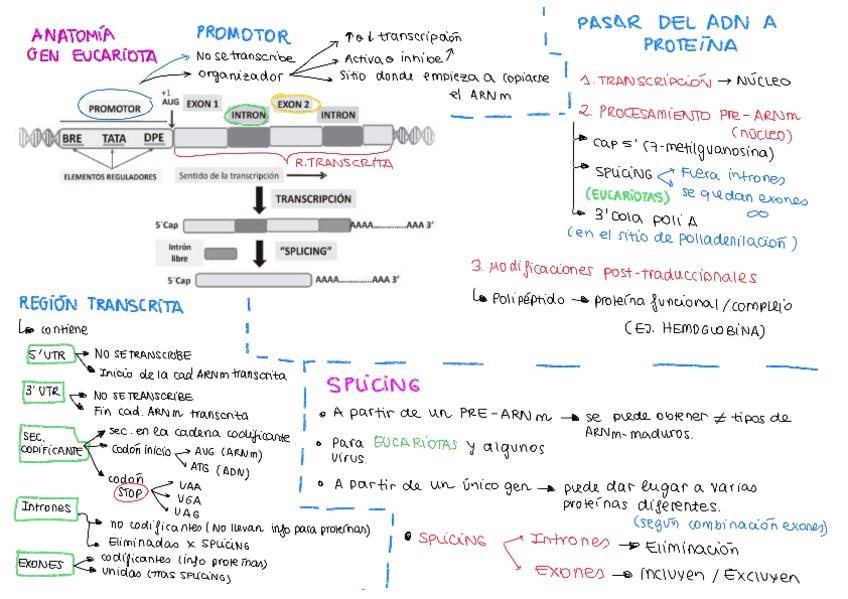 ANATOMÍA
GEN EUCARIOTA
PROMOTOR
No se transcribe
organizador
↑ o ↓ transcripción
Activa o inhibe ↑
Sitio donde empieza a copiarse
el ARNm
PROMOTOR
+1
AUG
EXON 1
INTRON
EXON 2
INTRON
BRE
TATA
DPE
R. TRANSCRITA
ELEMENTOS REGULADORES
Sentido de la transcripción
TRANSCRIPCIÓN
5´Cap
AAAA..............AAA 3’
Intrón
libre
"SPLICING"
5´Cap
AAAA..............AAA 3’
PASAR DEL ADN A
PROTEÍNA
1. TRANSCRIPCIÓN → NÚCLEO
2. PROCESAMIENTO PRE-ARNm
(NÚCLEO)
cap 5' (7-metilguanosina)
SPLICING
(EUCARIOTAS)
Fuera intrones
se quedan exones
∞
3' cola poli A
(en el sitio de poliadenilación)
3. Modificaciones post-traduccionales
Polipéptido → proteína funcional/complejo
(EJ. HEMOGLOBINA)
REGIÓN TRANSCRITA
contiene
5' UTR
NO SE TRANSCRIBE
Inicio de la cad ARNm transcrita
3' UTR
NO SE TRANSCRIBE
Fin cad. ARNm transcrita
SEC.
CODIFICANTE
sec. en la cadena codificante
codón inicio
AUG (ARNm)
ATG (ADN)
codón
STOP
UAA
UGA
UAG
Intrones
no codificantes (No llevan info para proteínas)
Eliminadas x SPLICING
EXONES
codificantes (info proteínas)
unidas (tras SPLICING)
SPLICING
• A partir de un PRE-ARNm → se puede obtener ≠ tipos de
ARNm-maduros.
• Para EUCARIOTAS y algunos
virus.
• A partir de un único gen → puede dar lugar a varias
proteínas diferentes.
(según combinación exones)
• SPLICING
Intrones → Eliminación
Exones → Incluyen / Excluyen